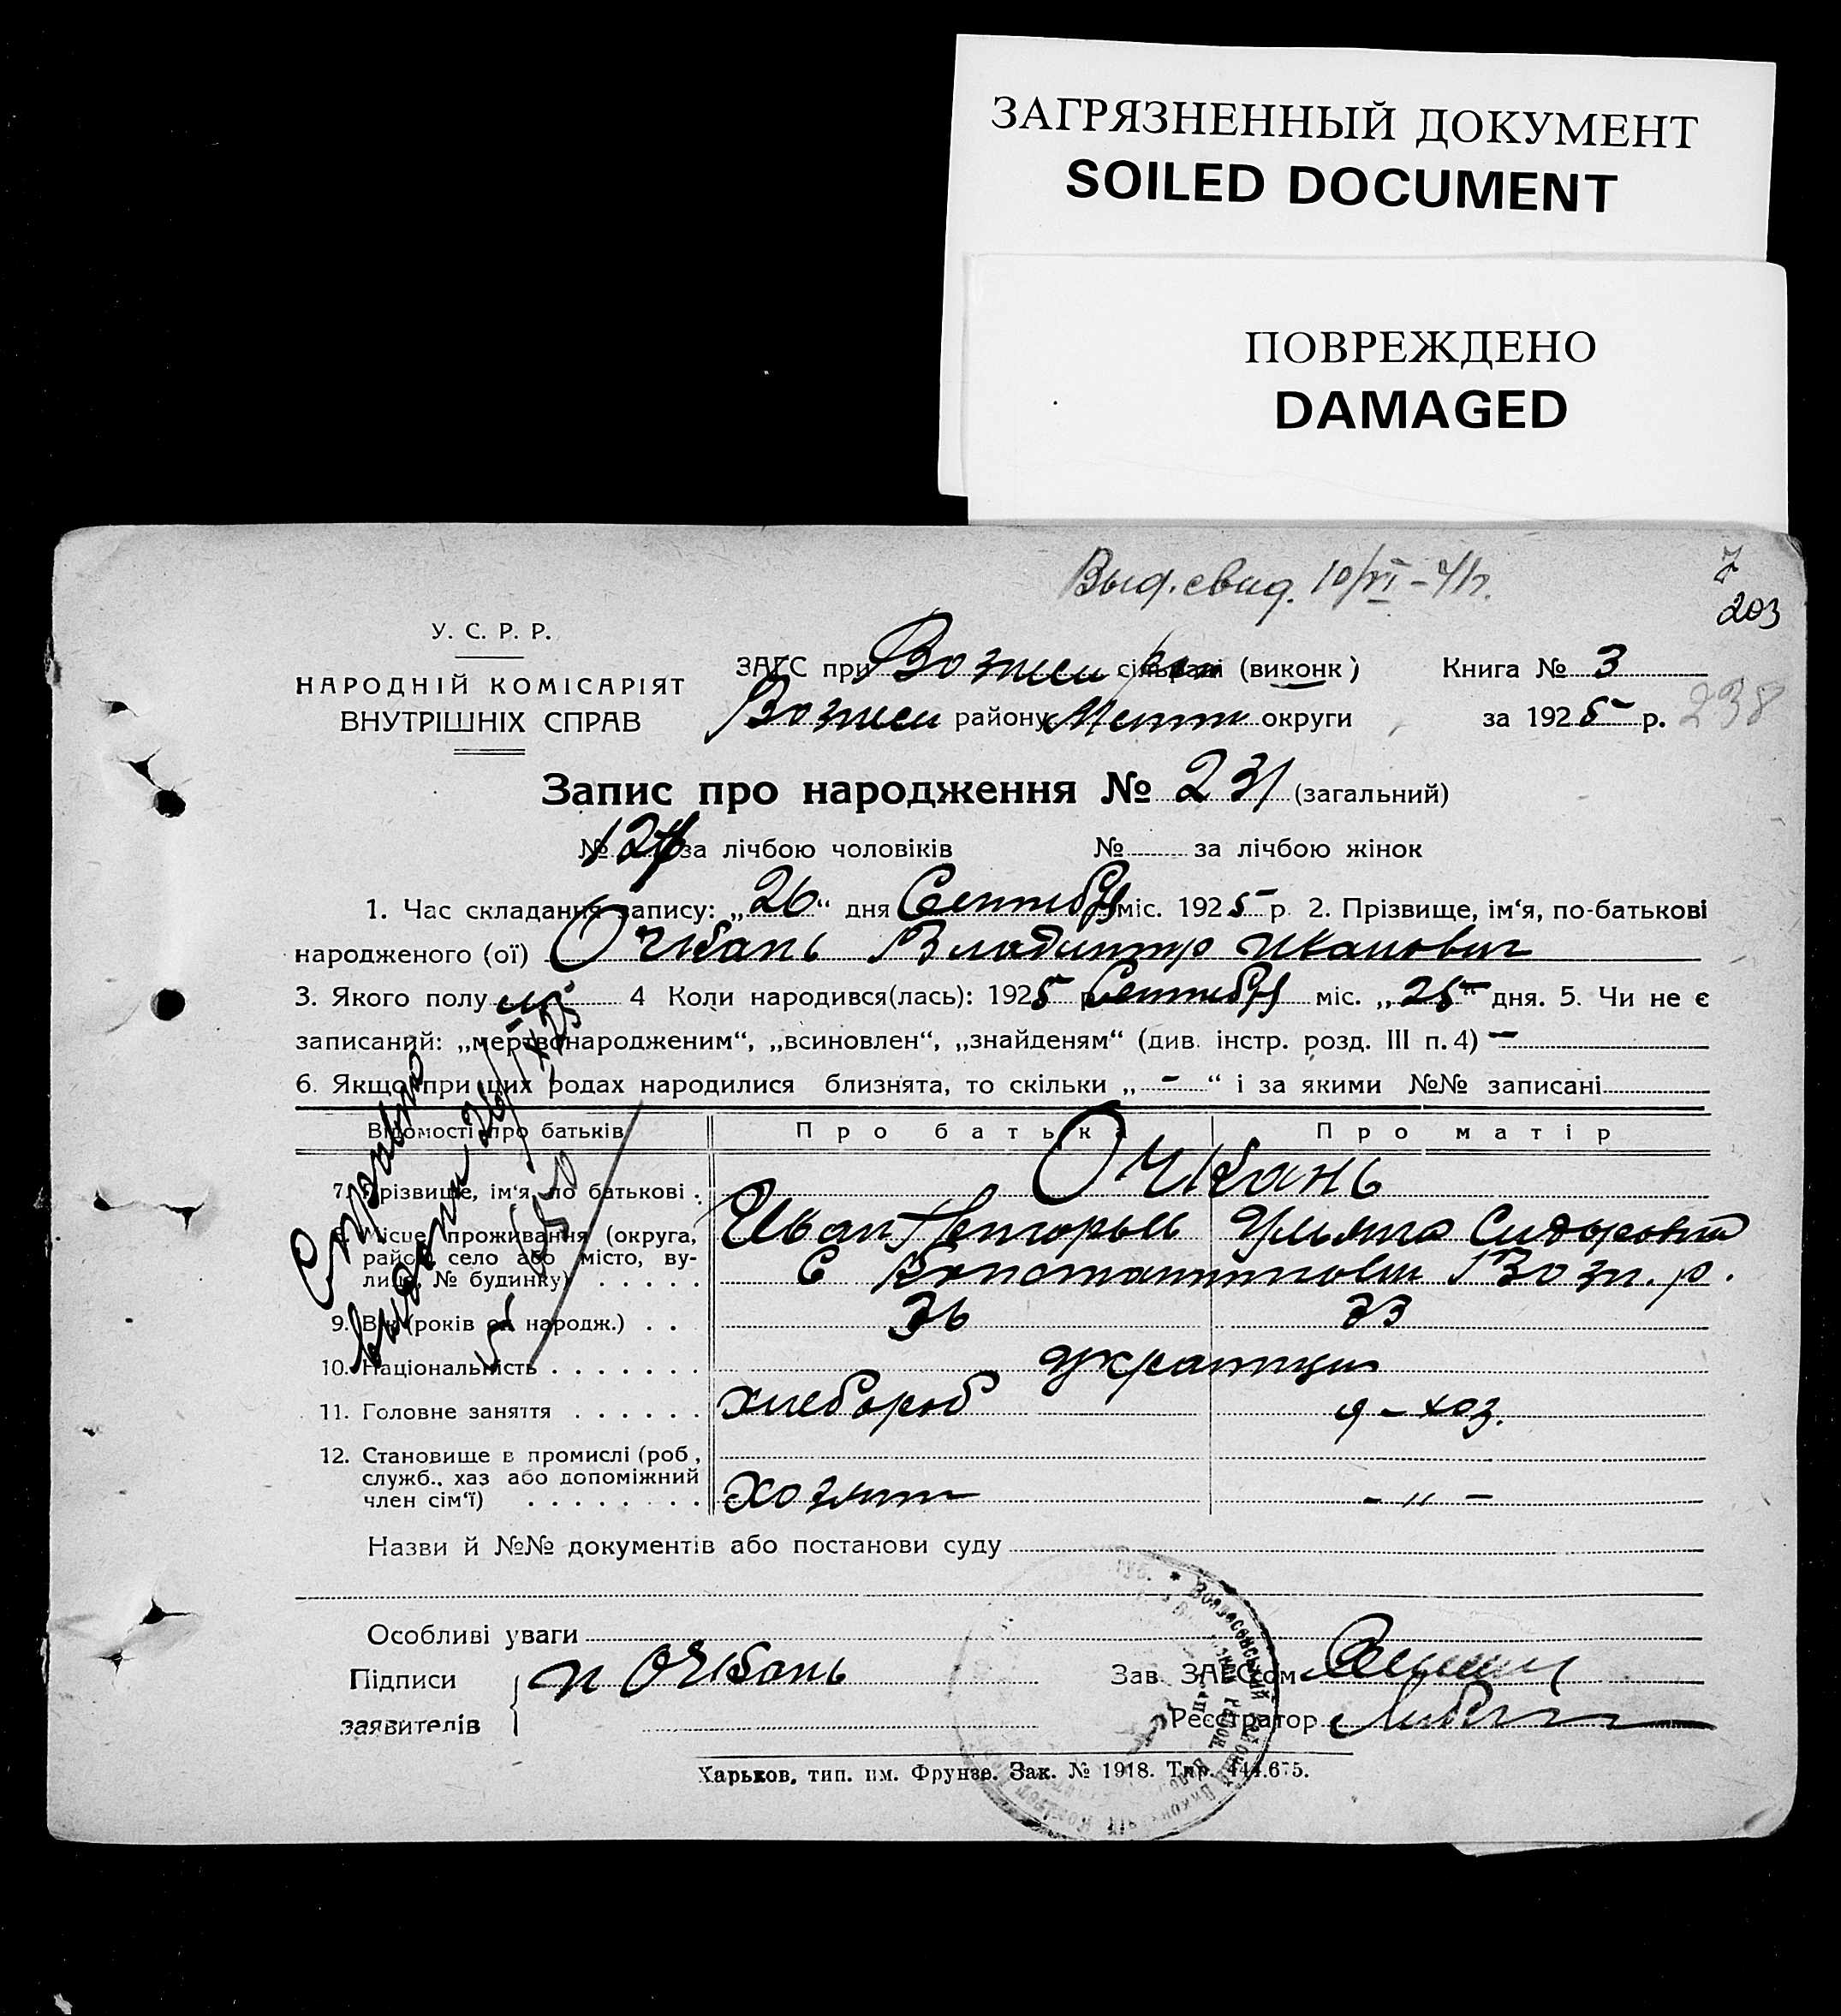 ЗАГРЯЗНЕННЫЙ ДОКУМЕНТ
SOILED DOCUMENT
ПОВРЕЖДЕНО
DAMAGED
Выд. свид. 10/VI
7
203
У. С. Р. Р.
НАРОДНІЙ КОМІСАРІЯТ
ВНУТРІШНІХ СПРАВ
ЗАГС при сільраді (виконк)
району округи
Книга № 3
за 1925 р. 238
Запис про народження № 231 (загальний)
№ за лічбою чоловіків № за лічбою жінок
1. Час складання запису: „26“ дня Сентября міс. 1925 р 2. Прізвище, ім‘я, по-батькові
народженого (ої) Очкань Владимир Иванович
3. Якого полу м 4 Коли народився(лась): 1925 р Сентября міс. „25“ дня. 5. Чи не є
записаний: „мертвонародженим“, „всиновлен“, „знайденям“ (див. інстр. розд. III п. 4) –
6. Якщо при цих родах народилися близнята, то скільки „ - “ і за якими №№ записані
Відомості про батьків Про батька Про матір
Очкань
7. Прізвище, ім‘я, по батькові .
Иван Ульяна Сидоровна
8. Місце проживання (округа,
район село або місто, ву-
лиця, № будинку) . . . . .
С Константиновки Возн. р.
9. Вік (років од народж.) . . 36 33
10. Національність . . . . . . . украинцы
11. Головне заняття . . . . . . хлебороб д - хоз.
12. Становище в промислі (роб,
служб., хаз або допоміжний
член сім‘ї) . . . . . . . . хозяин - " -
Справка
выдана 26/IX 25
Назви й №№ документів або постанови суду
Особливі уваги
Підписи
заявителів
п Очкань
Зав. ЗАГСом
Реєстратор
Харьков, тип. им. Фрунзе. Зак. № 1918. Тир. 444.675.